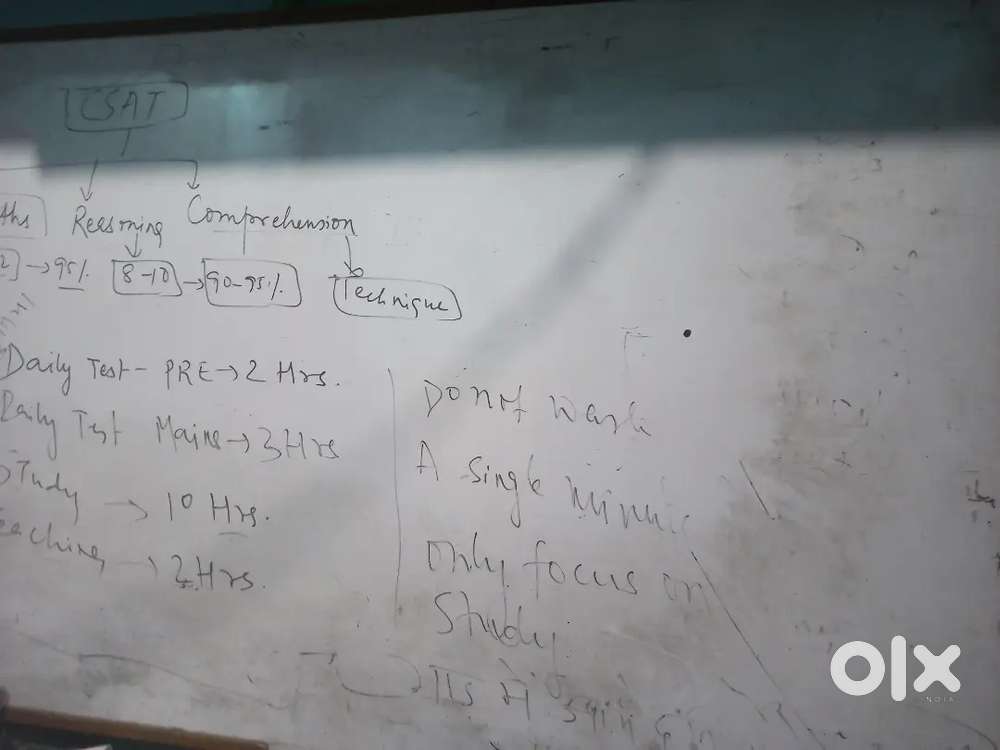 CSAT
Reasoning Comprehension
→ 95% 8-10 → 90-95% Technique
Daily Test - PRE → 2 Hrs.
Daily Test Mains → 3 Hrs
Study → 10 Hrs.
Teaching → 2 Hrs.
Do not
A single
only focus on
Study.
OLX
INDIA